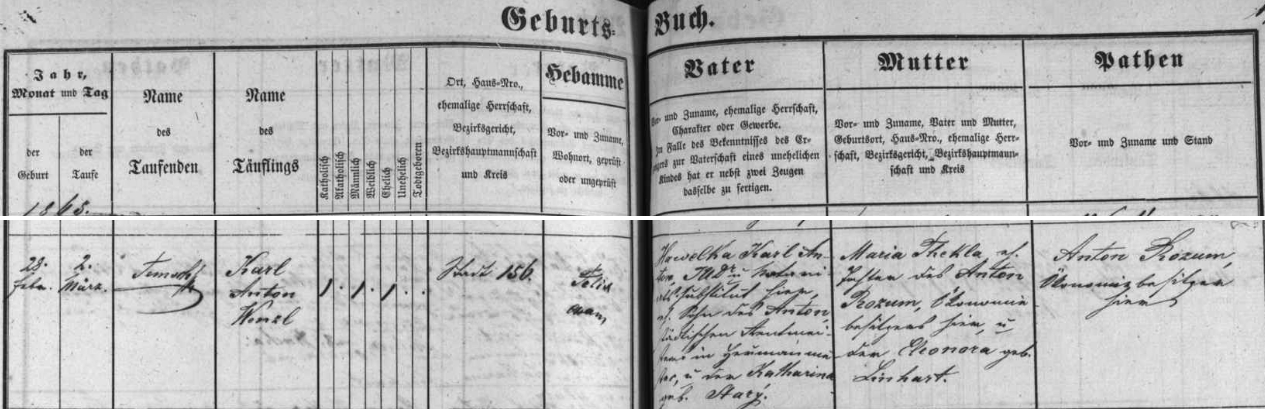 Geburts-
Buch.
Jahr,
Monat und Tag
der
Geburt
der
Taufe
Name
des
Taufenden
Name
des
Täuflings
Katholisch
Akatholisch
Männlich
Weiblich
Ehelich
Unehelich
Todtgeboren
Ort, Haus-Nro.,
ehemalige Herrschaft,
Bezirksgericht,
Bezirkshauptmannschaft
und Kreis
Hebamme
Vor- und Zuname,
Wohnort, geprüft
oder ungeprüft
Vater
Vor- und Zuname, ehemalige Herrschaft,
Charakter oder Gewerbe.
Im Falle des Bekenntnisses des Er-
zeugers zur Vaterschaft eines unehelichen
Kindes hat er nebst zwei Zeugen
dasselbe zu fertigen.
Mutter
Vor- und Zuname, Vater und Mutter,
Geburtsort, Haus-Nro., ehemalige Herr-
schaft, Bezirksgericht, Bezirkshauptmann-
schaft und Kreis
Pathen
Vor- und Zuname und Stand
1865.
28.
Febr.
2.
März.
Karl
Anton
Wenzl
1 . 1 . 1 . .
Stadt 156.
Hawelka Karl An-
ton, JUDr. u Notari-
atssubstitut hier,
eh. Sohn des Anton,
städtischen Rentmei-
sters in
u. der Katharina
geb. Starý.
Maria Thekla eh.
Tochter des Anton
Rozum, Ökonomie-
besitzers hier, u
der Eleonora geb.
Linhart.
Anton Rozum,
Ökonomiebesitzer
hier